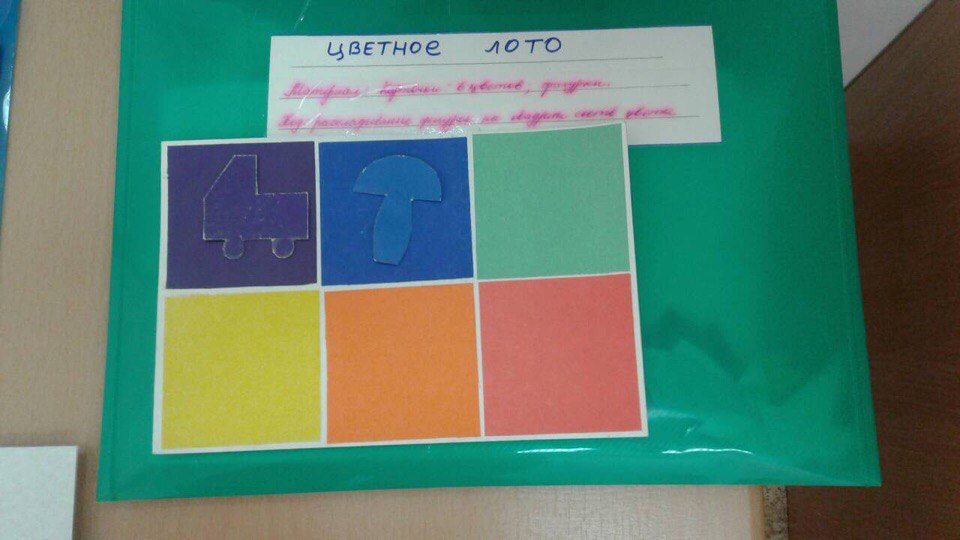 ЦВЕТНОЕ ЛОТО
Материал: карточки 6 цветов, фигурки.
Ход: раскладывание фигурок на квадрат своего цвета